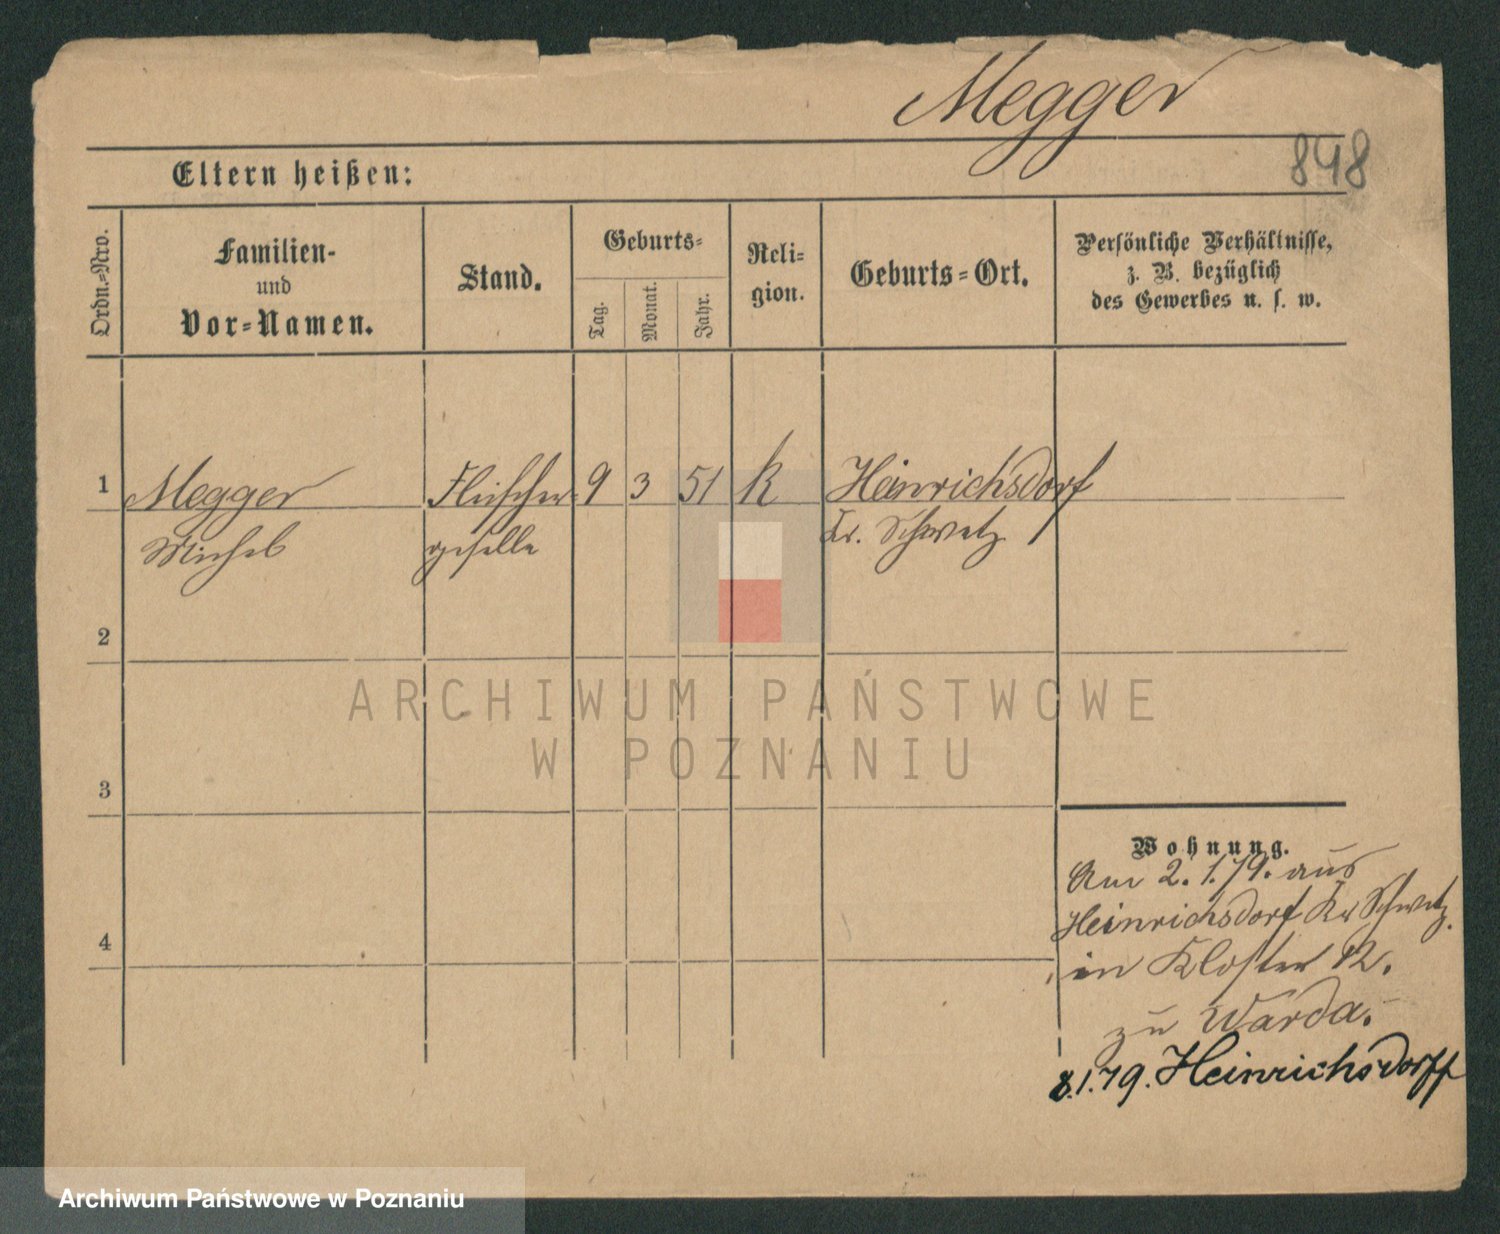 Megger
898
Eltern heißen:
Ordn.-Nro.
Familien-
und
Vor-Namen.
Stand.
Geburts-
Tag.
Monat.
Jahr.
Reli-
gion.
Geburts-Ort.
Persönliche Verhältnisse,
z. B. bezüglich
des Gewerbes u. s. w.
1
Megger
Michel
Fleischer-
geselle
9
3
51
k
Heinrichsdorf
Kr. Schwetz
2
3
4
Wohnung.
Am 2.1.79. aus
Heinrichsdorf Kr Schwetz.
in Kloster 12.
zu Warda.
8.1.79. Heinrichsdorff
ARCHIWUM PAŃSTWOWE
W POZNANIU
Archiwum Państwowe w Poznaniu